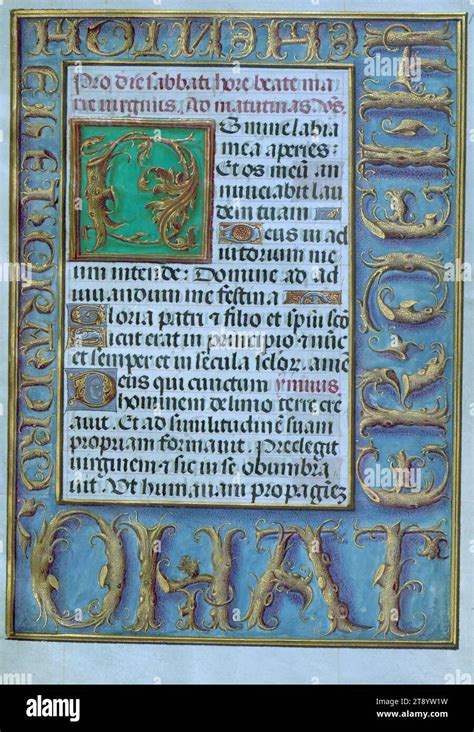 Pro die sabbati hore beate ma
rie virginis, Ad matutinas vs.
Domine labia
mea aperies:
Et os meū an
nunciabit lau
dem tuam
Deus in ad
iutorium me
um intende: Domine ad ad
iuuandum me festina
Gloria patri & filio et spiri scō
Sicut erat in principio & nūc
et semper et in secula sclor. amē
Deus qui cunctum ymnus.
hominem de limo terre cre
auit. Et ad similitudinē suam
propriam formauit. Preelegit
virginem & sic in se obumbra
uit. Vt humanam propagēz
OHAT
alamy
Image ID: 2T8YW1W
www.alamy.com